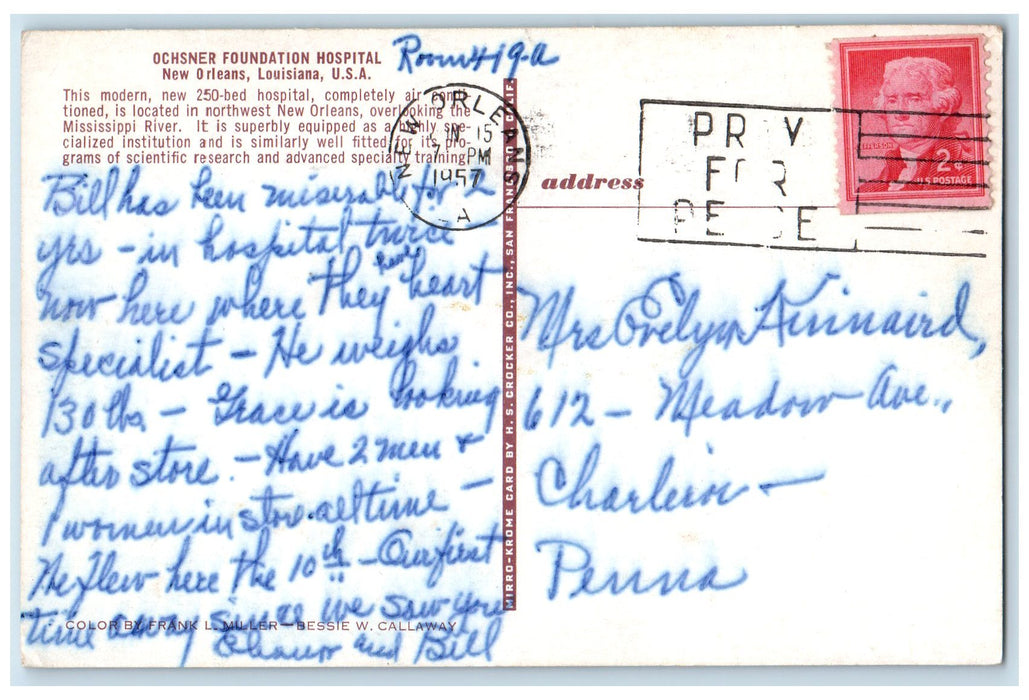 OCHSNER FOUNDATION HOSPITAL
New Orleans, Louisiana, U.S.A.
Room 419-A
This modern, new 250-bed hospital, completely air condi-
tioned, is located in northwest New Orleans, overlooking the
Mississippi River. It is superbly equipped as a highly spe-
cialized institution and is similarly well fitted for its pro-
grams of scientific research and advanced specialty training.
Bill has been miserable for 2
yrs - in hospital twice
now here where they have heart
specialist - He weighs
130 lbs - Grace is looking
after store. - Have 2 men &
1 women in store all time -
He flew here the 10th - Our first
time away since we saw you
and Bill
COLOR BY FRANK L. MILLER—BESSIE W. CALLAWAY
MIRRO-KROME CARD BY H. S. CROCKER CO., INC., SAN FRANCISCO, CALIF.
NEW ORLEANS
JUN 15
7 PM
1957
LA
PRAY
FOR
PEACE
JEFFERSON
2¢
U.S. POSTAGE
address
Mrs Evelyn Kinnaird,
612 - Meadow Ave.,
Charleroi -
Penna